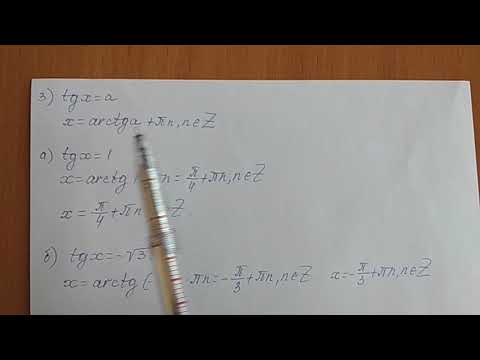 3) tgx=a
x=arctga+πn, n∈Z
а) tgx=1
x=arctg n=π/4+πn, n∈Z
x=π/4+πn Z
б) tgx=-√3
x=arctg(- πn=-π/3+πn, n∈Z x=-π/3+πn, n∈Z